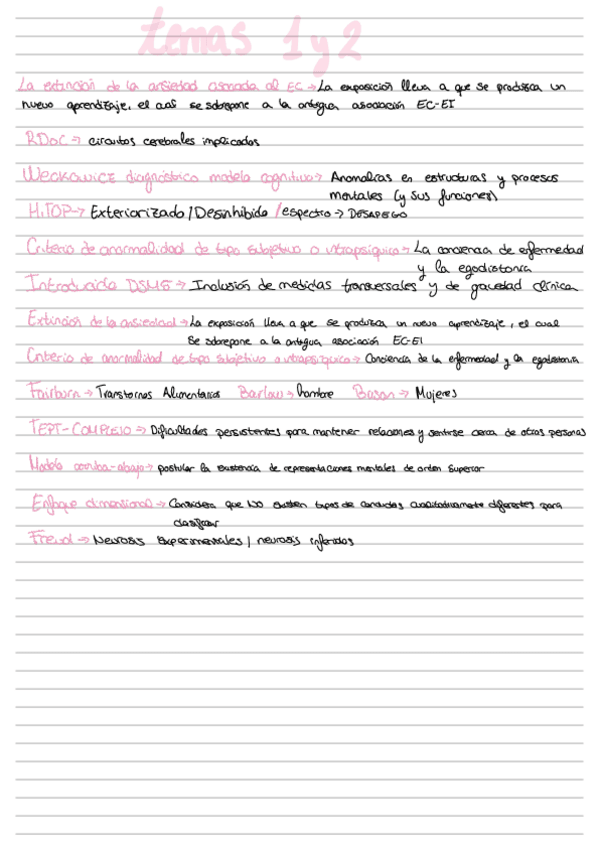 temas 1 y 2
La extinción de la ansiedad asociada al EC → La exposición lleva a que se produzca un
nuevo aprendizaje, el cual se sobrepone a la antigua asociación EC-EI
RDoC → circuitos cerebrales implicados
Weckowicz diagnóstico modelo cognitivo → Anomalías en estructuras y procesos
mentales (y sus funciones)
HiTOP → Exteriorizado / Desinhibido / espectro → DESAPEGO
Criterio de anormalidad de tipo subjetivo o intrapsíquico → La conciencia de enfermedad
y la egodistonía
Introducido DSM5 → Inclusión de medidas transversales y de gravedad clínica
Extinción de la ansiedad → La exposición lleva a que se produzca un nuevo aprendizaje, el cual
se sobrepone a la antigua asociación EC-EI
Criterio de anormalidad de tipo subjetivo o intrapsíquico → Conciencia de la enfermedad y la egodistonía
Fairburn → Transtornos Alimentarios Barlow → hombre Basan → Mujeres
TEPT-COMPLEJO → Dificultades persistentes para mantener relaciones y sentirse cerca de otras personas
Modelo arriba-abajo → postular la existencia de representaciones mentales de orden superior
Enfoque dimensional → Considera que NO existen tipos de conductas cualitativamente diferentes para
clasificar
Freud → Neurosis experimentales / neurosis inferidas